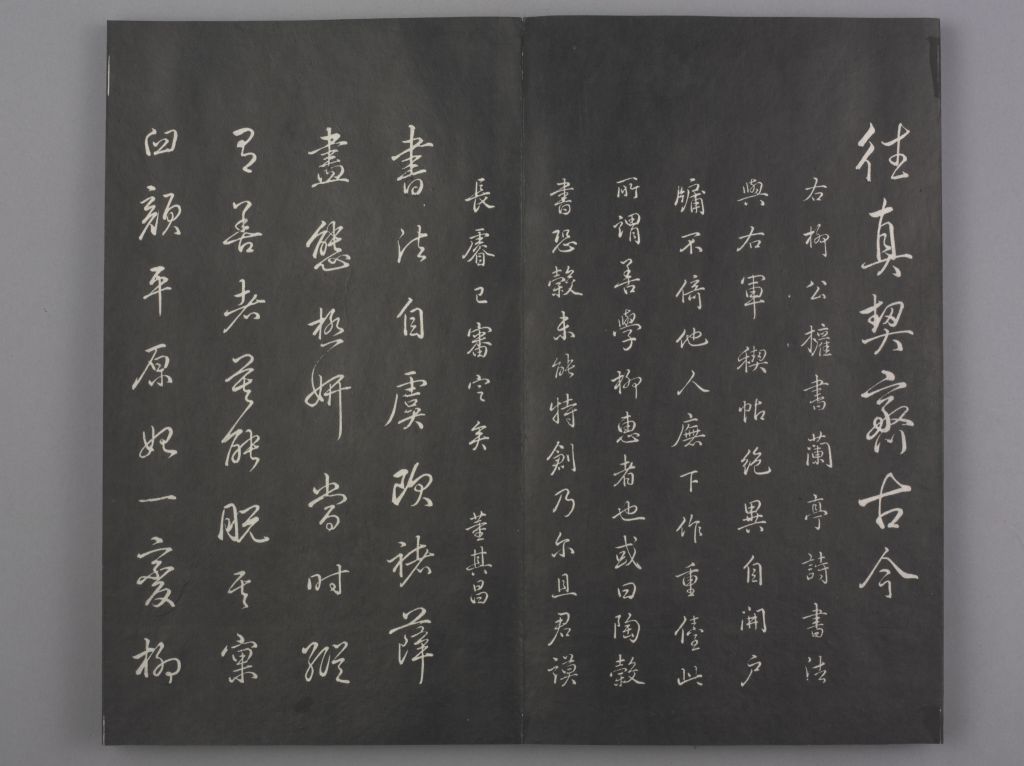 往真契齊古今
右柳公權書蘭亭詩書法
與右軍禊帖絕異自開戶
牖不倚他人廡下作重儓此
所謂善學柳惠者也或曰陶穀
書恐穀未能特創乃尔且君謨
長睿已審定矣 董其昌
書法自虞歐褚薛
盡態極妍當時縱
有善者莫能脫其窠
臼顏平原始一變柳